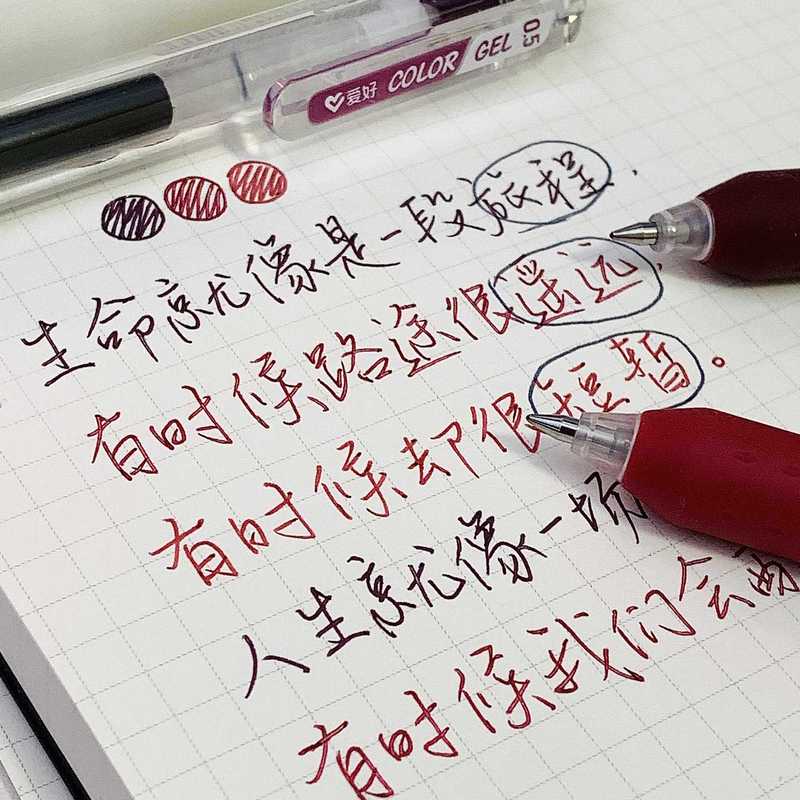 爱好 COLOR GEL 0.5
生命就像是一段旅程.
有时候路途很遥远.
有时候却很短暂。
人生就像一场
有时候我们会